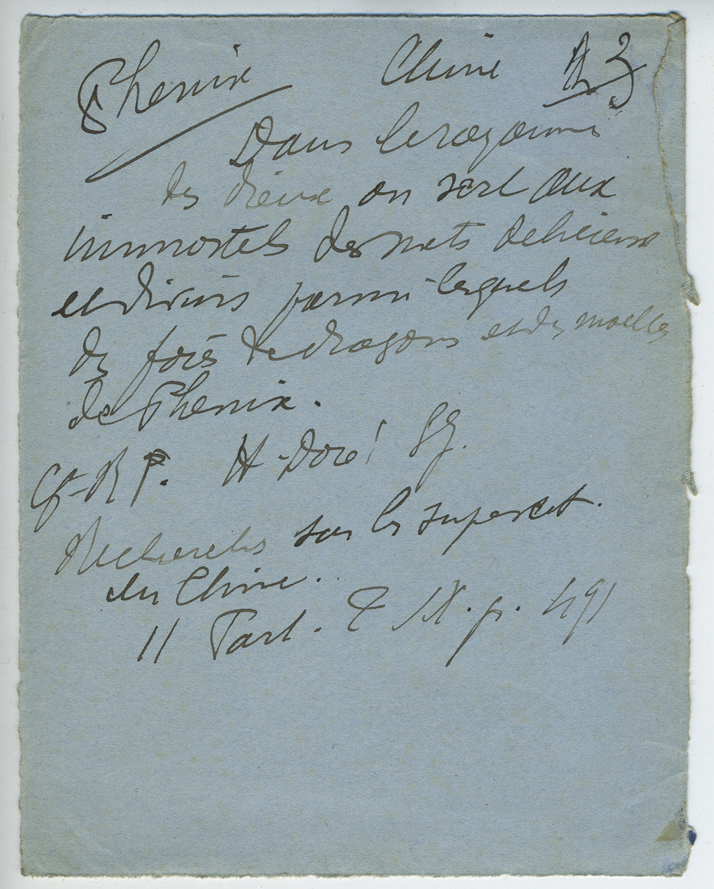 Phenix Chine A3
Dans le royaume
des dieux on sert aux
immortels des mets delicieux
et divins parmi lesquels
des foies de dragons et des moelles
de Phenix.
Cf. R P. H. Doré SJ.
Recherches sur les superst.
en Chine.
II Part. T IX. p. 491